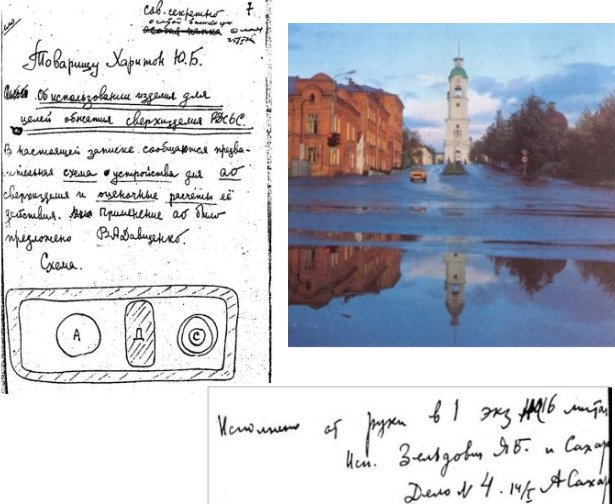 сов. секретно 7
особая папка
Товарищу Харитон Ю.Б.
Об использовании изделия для
целей обжатия сверхизделия РДС-6С.
В настоящей записке сообщаются предва-
рительная схема устройства для АО
сверхизделия и оценочные расчеты её
действия. Применение АО было
предложено В.А.Давиденко.
Схема.
А Д С
Исполнено от руки в 1 экз на 16 листах
Исп. Зельдович Я.Б. и Сахар
Дело № 4. 14/I А Сахар